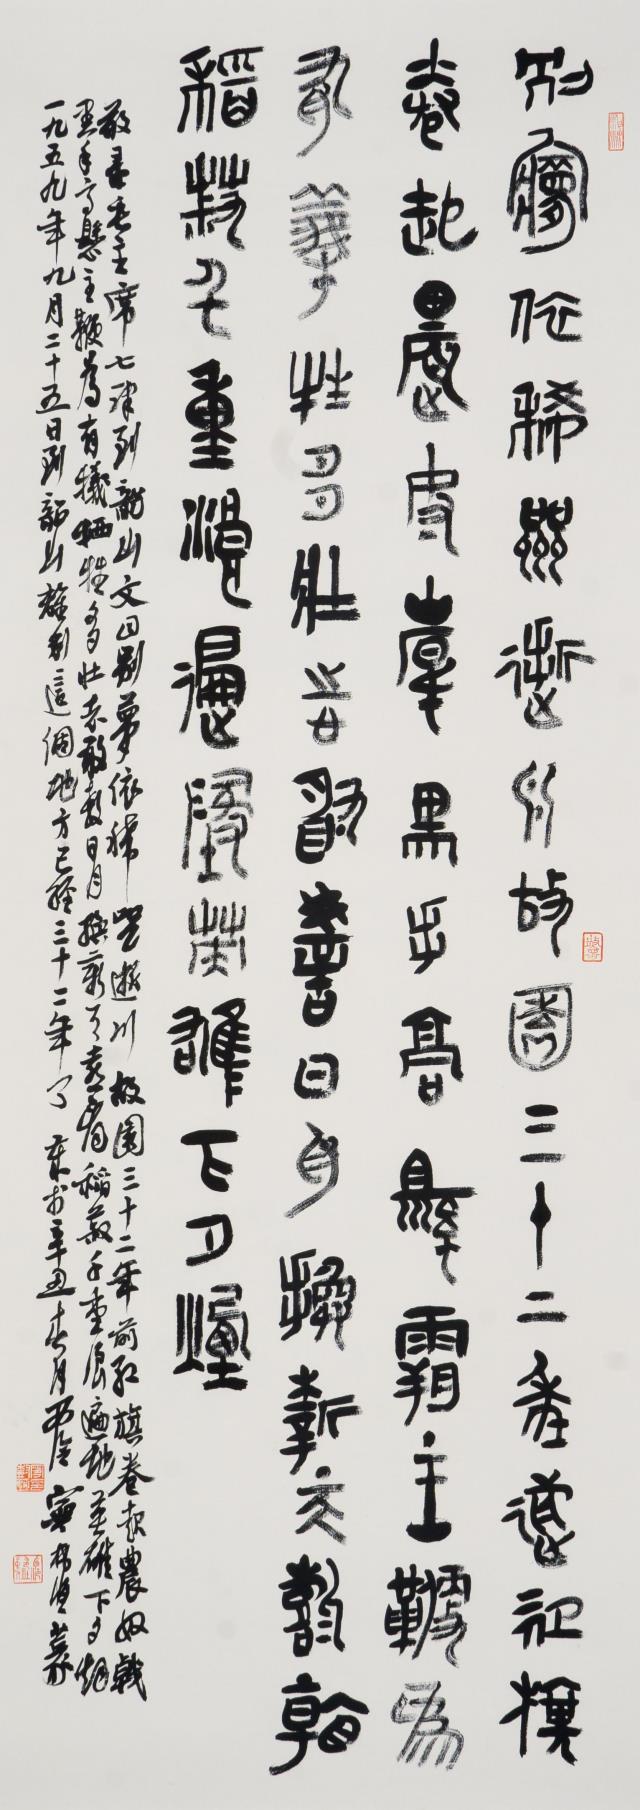 別夢依稀咒逝川故園三十二年前紅旗
卷起農奴戟黑手高懸霸主鞭為
有犧牲多壯志敢教日月換新天喜看
稻菽千重浪遍地英雄下夕煙
敬書毛主席七律到韶山文曰別夢依稀咒逝川故園三十二年前紅旗卷起農奴戟
黑手高懸主鞭為有犧牲多壯志敢教日月換新天喜看稻菽千重浪遍地英雄下夕煙
一九五九年九月二十五日到韶山離別這個地方已經三十二年了 歲於辛丑春月西泠